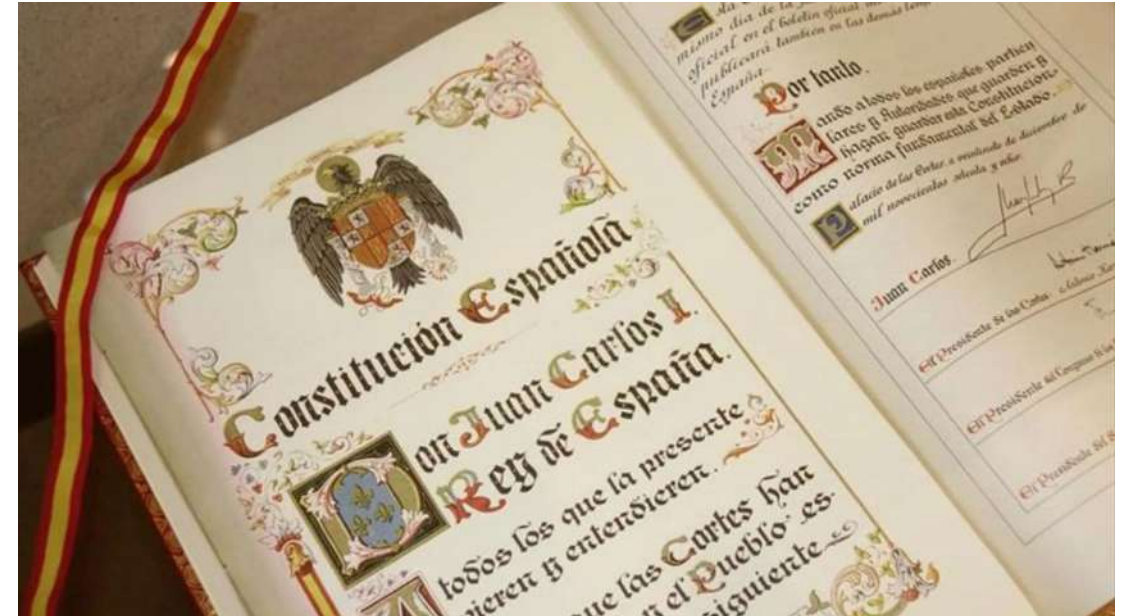 Constitución Española
Don Juan Carlos I.
Rey de España.
A todos los que la presente
vieren y entendieren.
que las Cortes han
el Pueblo es-
siguiente
mismo día de la
oficial en el boletín oficial
publicará también en las demás
España.
Por tanto.
Mando a todos los españoles. particu
lares y Autoridades que guarden y
hagan guardar esta Constitución
como norma fundamental del Estado.
Palacio de las Cortes, a veintisiete de diciembre de
mil novecientos setenta y ocho.
Juan Carlos.
El Presidente de las Cortes
El Presidente del Congreso de los
El Presidente del